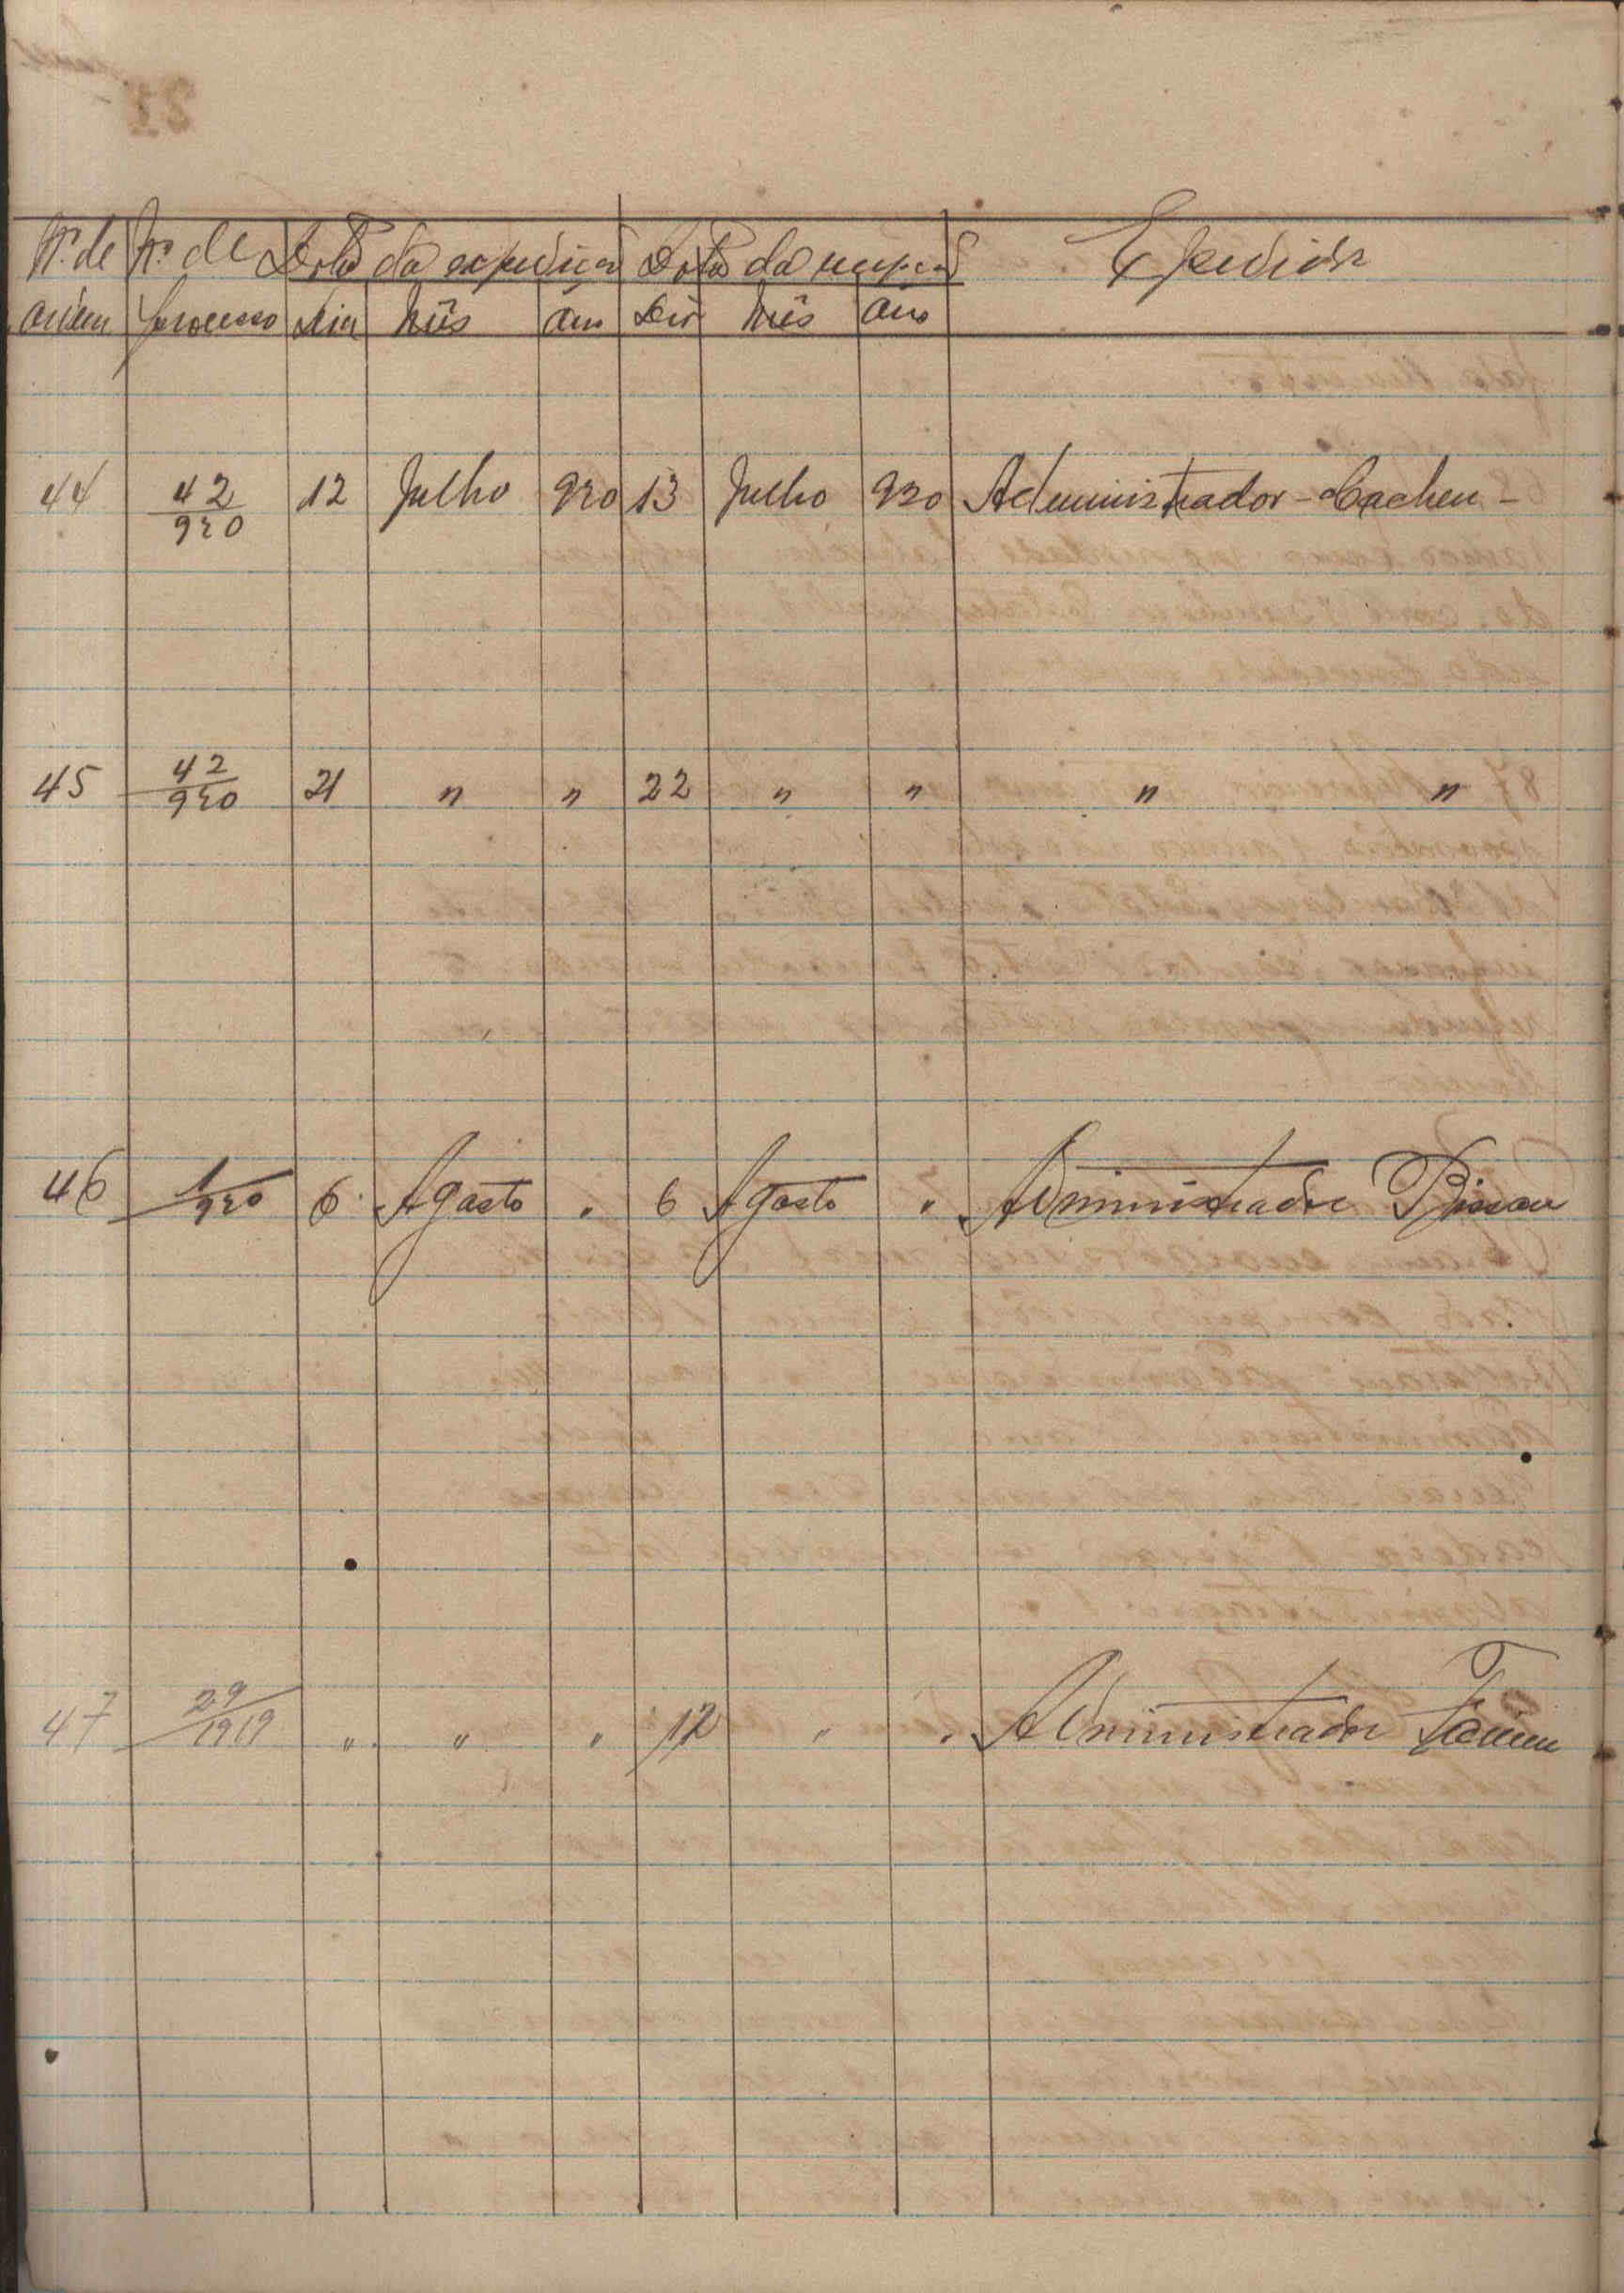 Nº de Nº de Data da expedição Data da recepção Expedidor
ordem processo Dia Mês Ano Dia Mês Ano
44 42/920 12 Julho 920 13 Julho 920 Administrador - Cacheu -
45 42/920 21 " " 22 " " " "
46 1/920 6 Agosto " 6 Agosto " Administrador Bissau
47 29/1919 " " " 12 " " Administrador Farim